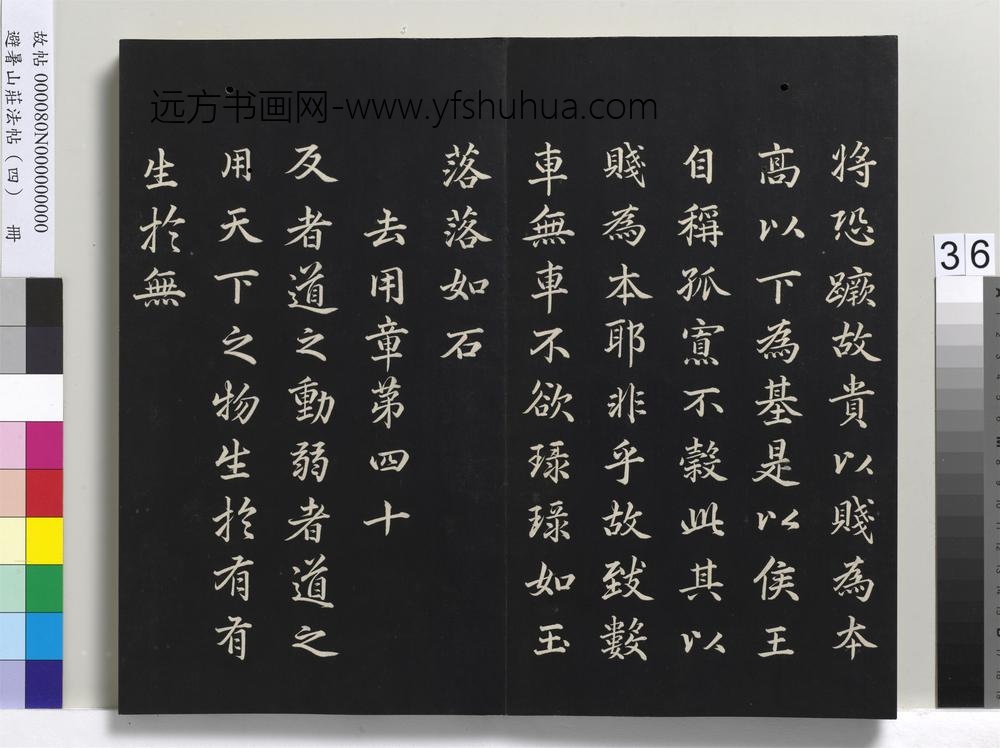 将恐蹶故貴以賤為本
高以下為基是以侯王
自稱孤寡不穀此其以
賤為本耶非乎故致數
車無車不欲琭琭如玉
落落如石
去用章第四十
反者道之動弱者道之
用天下之物生於有有
生於無
远方书画网-www.yfshuhua.com
故帖 000080N000000000
避暑山莊法帖（四） 冊
36